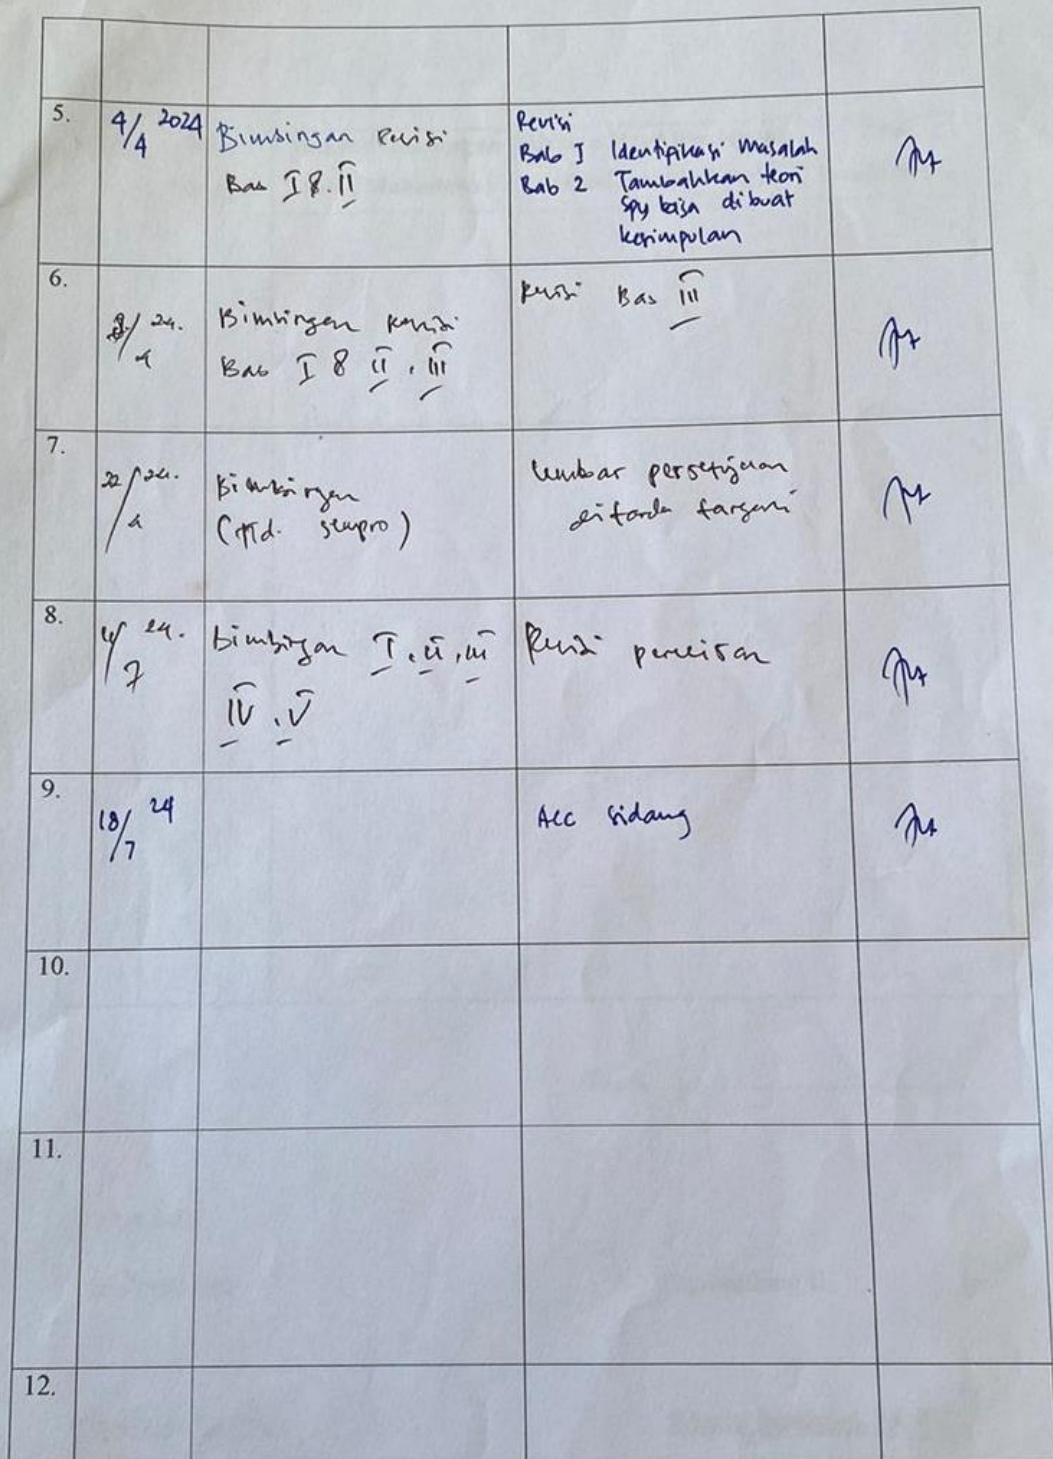 5.
4/4 2024
Bimbingan Revisi
Bab I & II
Revisi
Bab I Identifikasi Masalah
Bab 2 Tambahkan teori
spy bisa dibuat
kesimpulan
6.
8/4 24.
Bimbingan Revisi
Bab I & II, III
Revisi Bab III
7.
22/4 24.
Bimbingan
(ttd. sempro)
lembar persetujuan
ditanda tangani
8.
/7 24.
Bimbingan I, II, III
IV, V
Revisi
9.
18/7 24
Acc sidang
10.
11.
12.